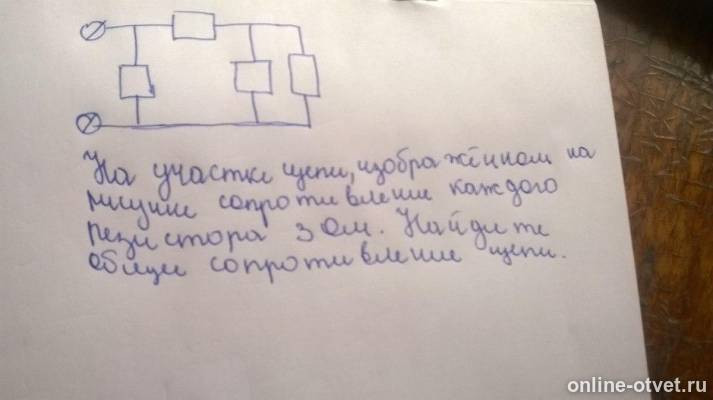 На участке цепи, изображённом на
рисунке сопротивление каждого
резистора 3 Ом. Найдите
общее сопротивление цепи.
online-otvet.ru